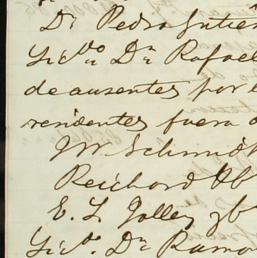 Dn Pedro Gutié
Licdo Dn Rafael
de ausentes por e
residentes fuera d
JW Schmidt
Reichard
E. L. Jolley
Licdo. Dn Ramo